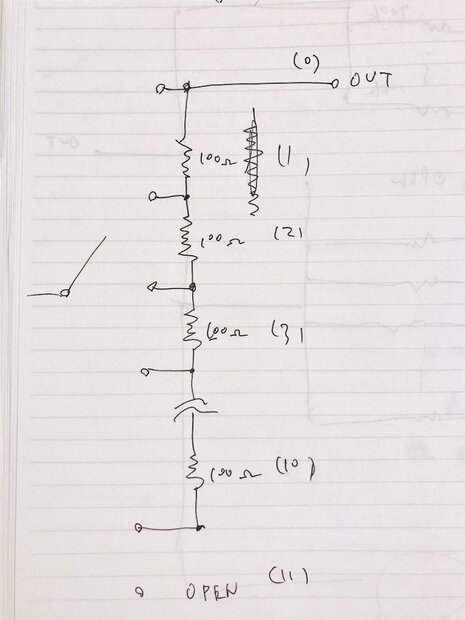 (0)
OUT
100Ω (1)
100Ω (2)
100Ω (3)
100Ω (10)
OPEN (11)